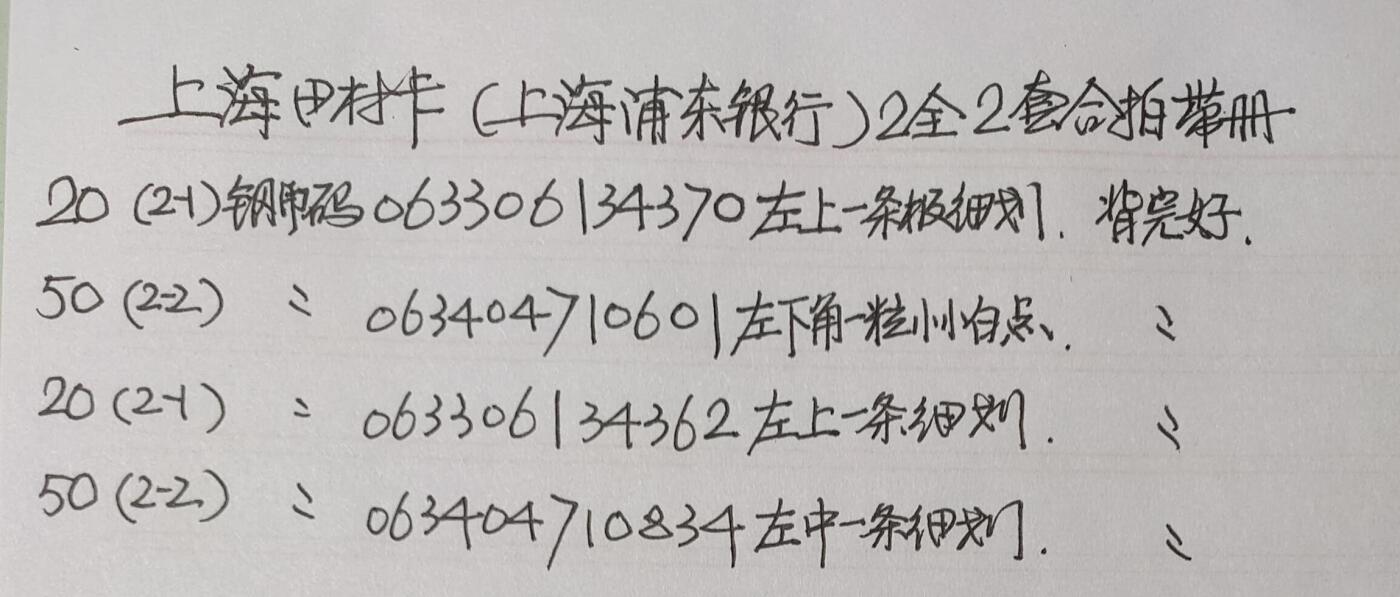 上海田村卡(上海浦东银行)2全2套合拍带册
20 (2-1) 钢印码063306134370左上一条极细划. 背完好.
50 (2-2) 〃 063404710601左下角一粒小小白点. 〃
20 (2-1) 〃 063306134362左上一条细划. 〃
50 (2-2) 〃 063404710834左中一条细划. 〃